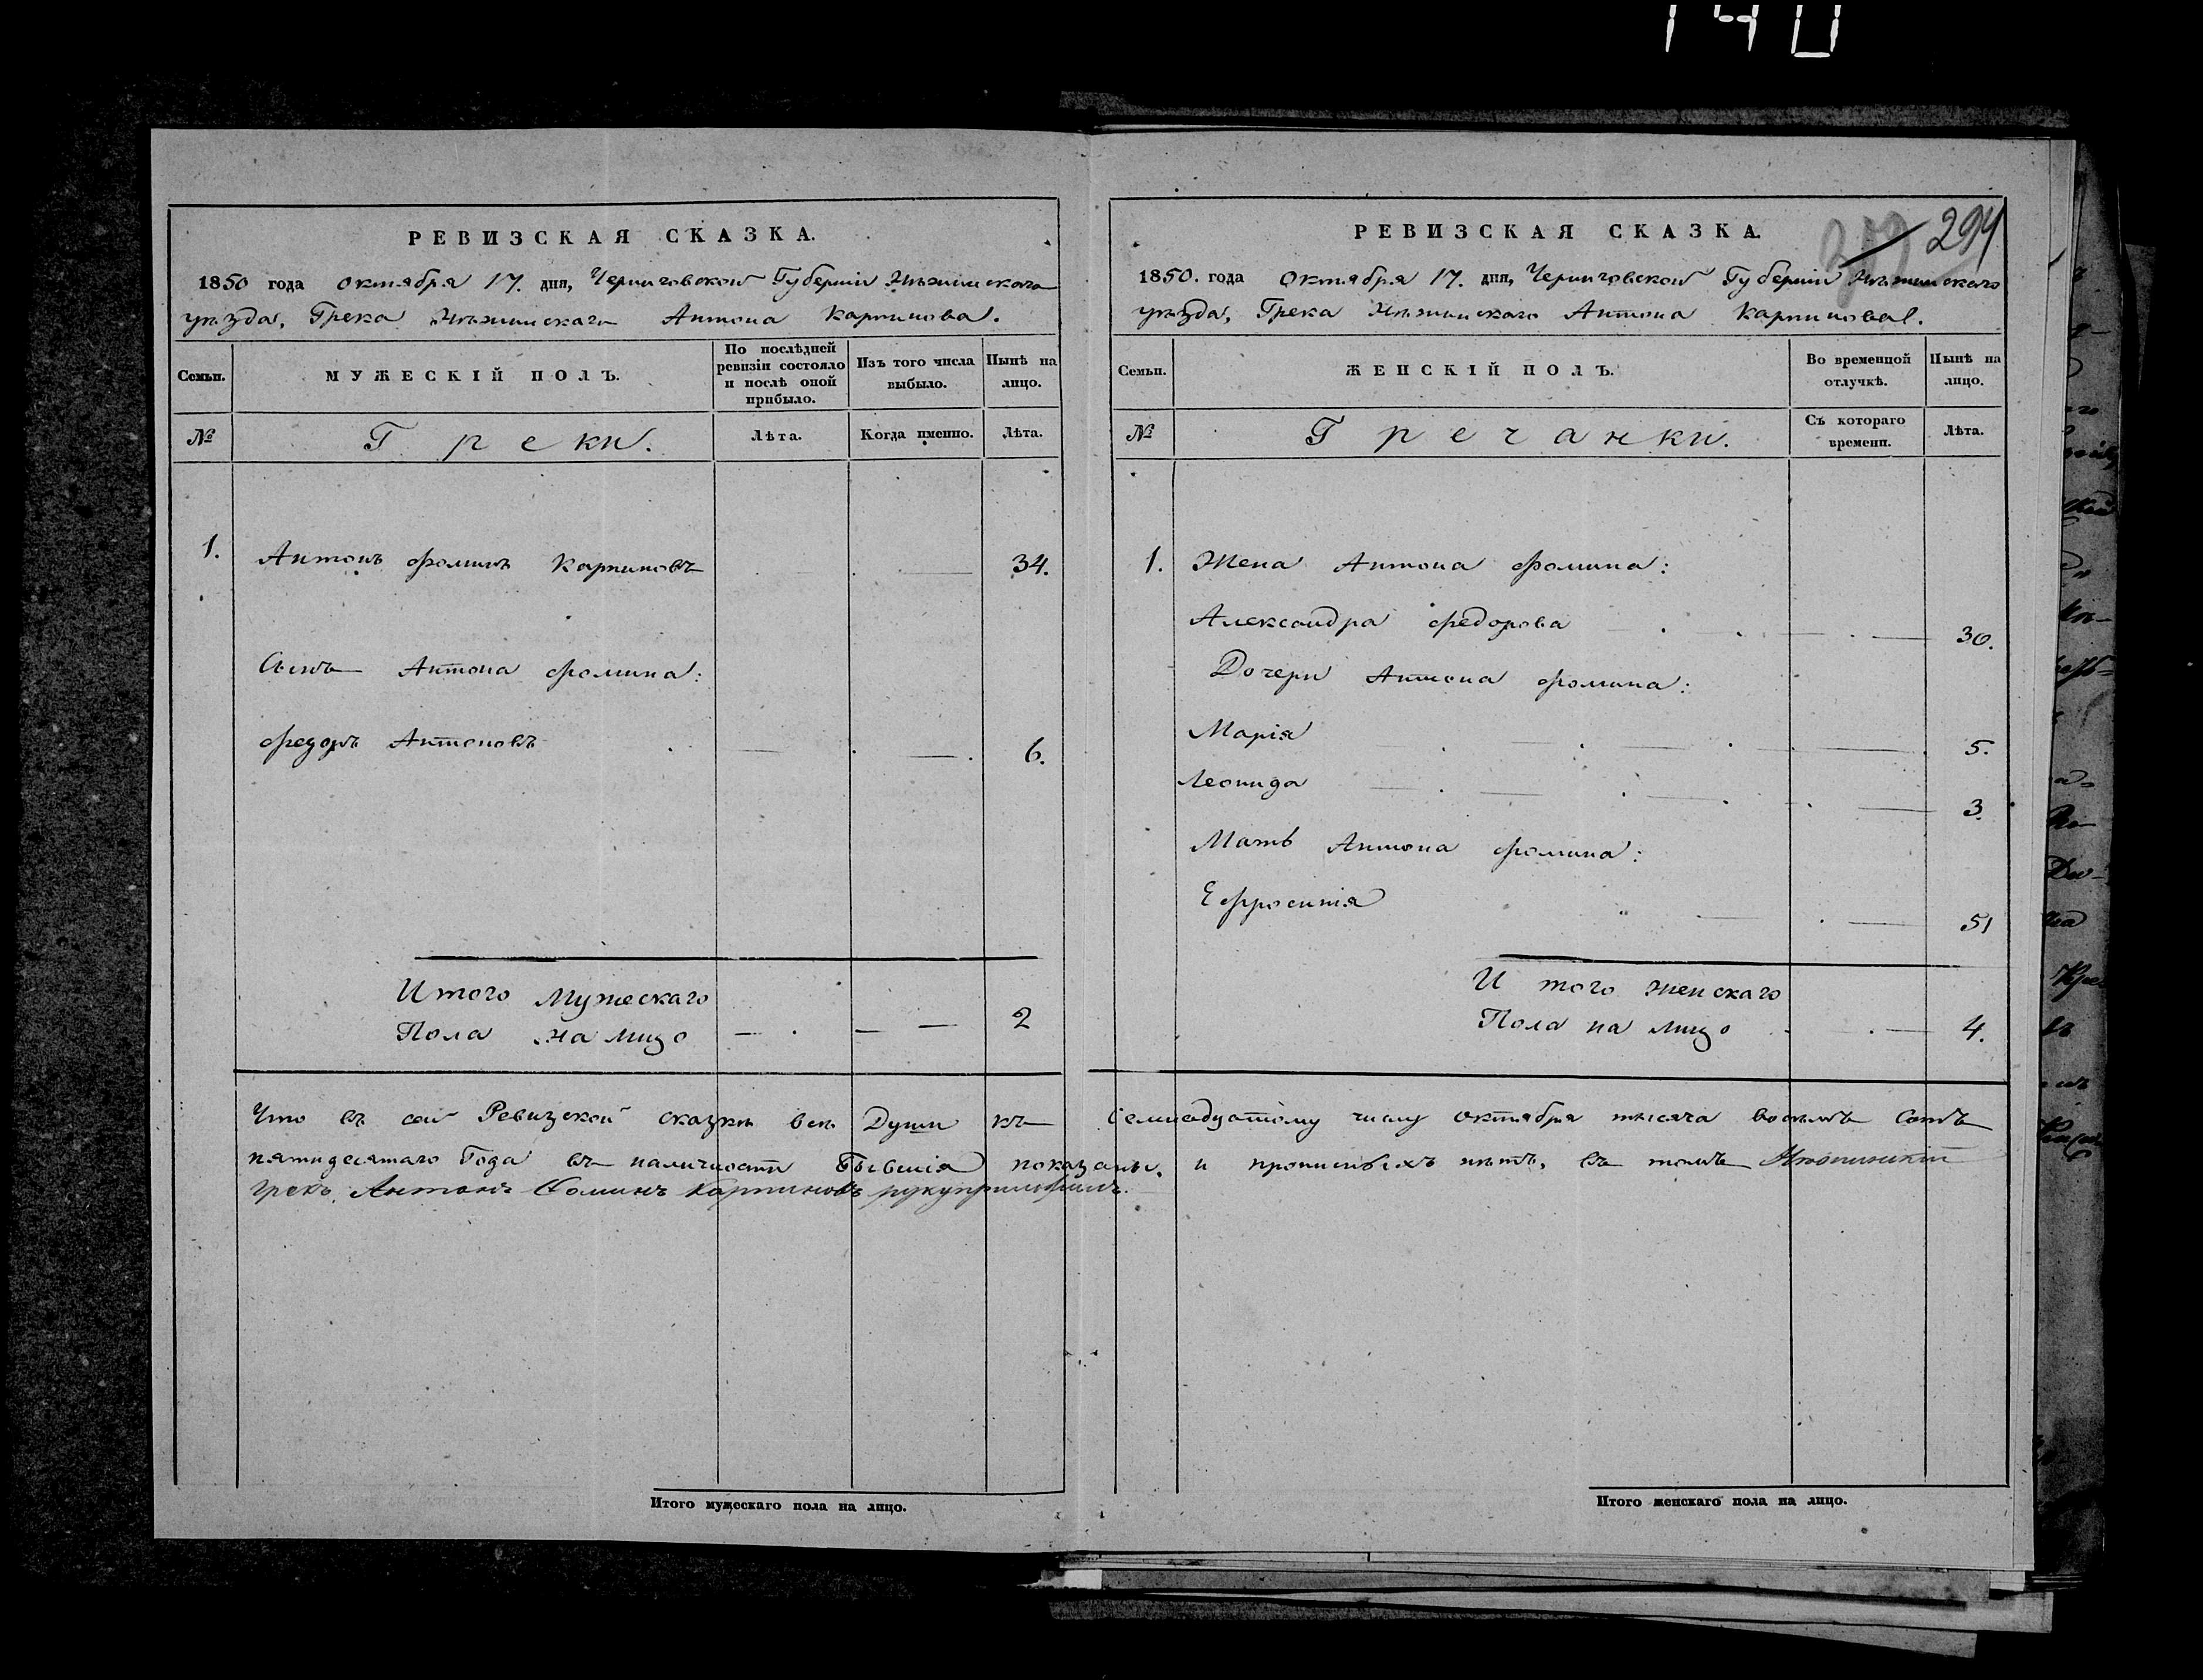 140
РЕВИЗСКАЯ СКАЗКА.
1850 года октября 17. дня, Черниговской Губерніи Нѣжинскаго
уѣзда, Грека Нѣжинскаго Антона Карпинова.
Семьи.
МУЖЕСКІЙ ПОЛЪ.
По послѣдней ревизіи состояло и послѣ оной прибыло.
Изъ того числа выбыло.
Нынѣ на лицо.
№
Греки.
Лѣта.
Когда именно.
Лѣта.
1. Антонъ Фоминъ Карпиновъ 34.
Сынъ Антона Фомина:
Федоръ Антоновъ 6.
Итого Мужескаго
Пола на лицо 2
РЕВИЗСКАЯ СКАЗКА.
294
1850. года Октября 17. дня, Черниговской Губерніи Нѣжинскаго
уѣзда, Грека Нѣжинскаго Антона Карпинова.
Семьи.
ЖЕНСКІЙ ПОЛЪ.
Во временной отлучкѣ.
Нынѣ на лицо.
№
Гречанки.
Съ котораго времени.
Лѣта.
1. Жена Антона Фомина:
Александра Федорова 30.
Дочери Антона Фомина:
Марія 5.
Леонида 3.
Мать Антона Фомина:
Ефросинія 51
И того женскаго
Пола на лицо 4.
Что въ сей Ревизской сказкѣ всѣ Души къ Семнадцатому числу октября тысяча восемъ Сотъ
пятидесятаго Года въ наличности Бывшія показаны, и прописныхъ нѣтъ, въ томъ Нѣжинскій
грекъ, Антонъ Фоминъ Карпиновъ руку приложилъ.
Итого мужескаго пола на лицо.
Итого женскаго пола на лицо.